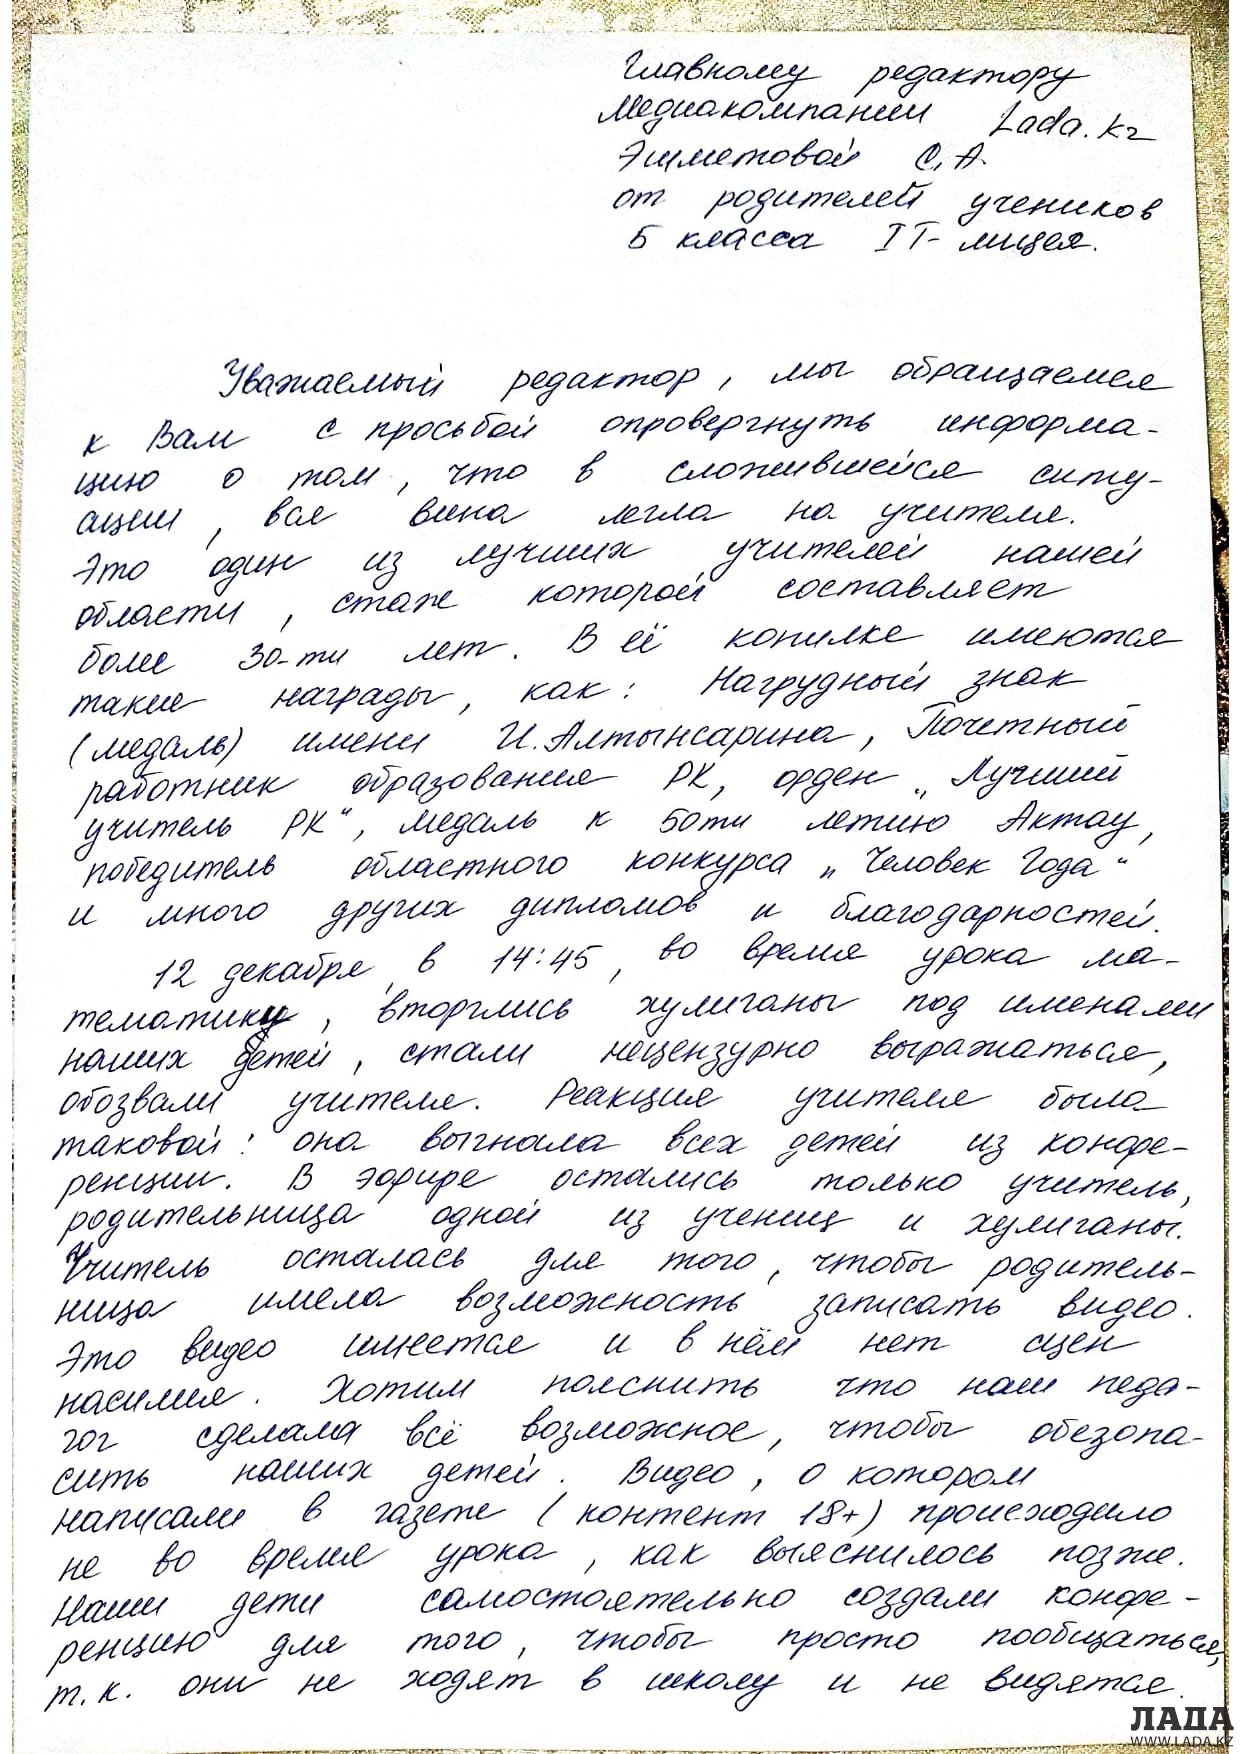 Главному редактору
Медиакомпании Lada.kz
Эшметовой С.А.
от родителей учеников
5 класса IT-лицея.
Уважаемый редактор, мы обращаемся
к Вам с просьбой опровергнуть информа-
цию о том, что в сложившейся ситу-
ации, вся вина легла на учителя.
Это один из лучших учителей нашей
области, стаж которой составляет
более 30-ти лет. В её копилке имеются
такие награды, как: Нагрудный знак
(медаль) имени И.Алтынсарина, Почетный
работник образования РК, орден „Лучший
учитель РК“, медаль к 50ти летию Актау,
победитель областного конкурса „Человек Года“
и много других дипломов и благодарностей.
12 декабря в 14:45, во время урока ма-
тематики, вторглись хулиганы под именами
наших детей, стали нецензурно выражаться,
обозвали учителя. Реакция учителя была
таковой: она выгнала всех детей из конфе-
ренции. В эфире остались только учитель,
родительница одной из учениц и хулиганы.
Учитель осталась для того, чтобы родитель-
ница имела возможность записать видео.
Это видео имеется и в нём нет сцен
насилия. Хотим пояснить что наш педа-
гог сделала всё возможное, чтобы обезопа-
сить наших детей. Видео, о котором
написали в газете (контент 18+) происходило
не во время урока, как выяснилось позже.
Наши дети самостоятельно создали конфе-
ренцию для того, чтобы просто пообщаться,
т.к. они не ходят в школу и не видятся.
ЛАДА
WWW.LADA.KZ